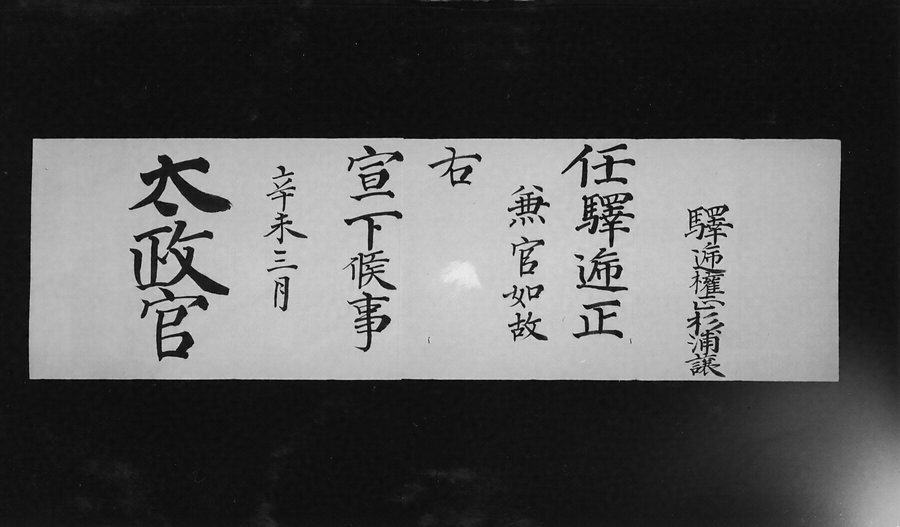 驛逓權正杉浦讓
任驛逓正
兼官如故
右
宣下候事
辛未三月
太政官